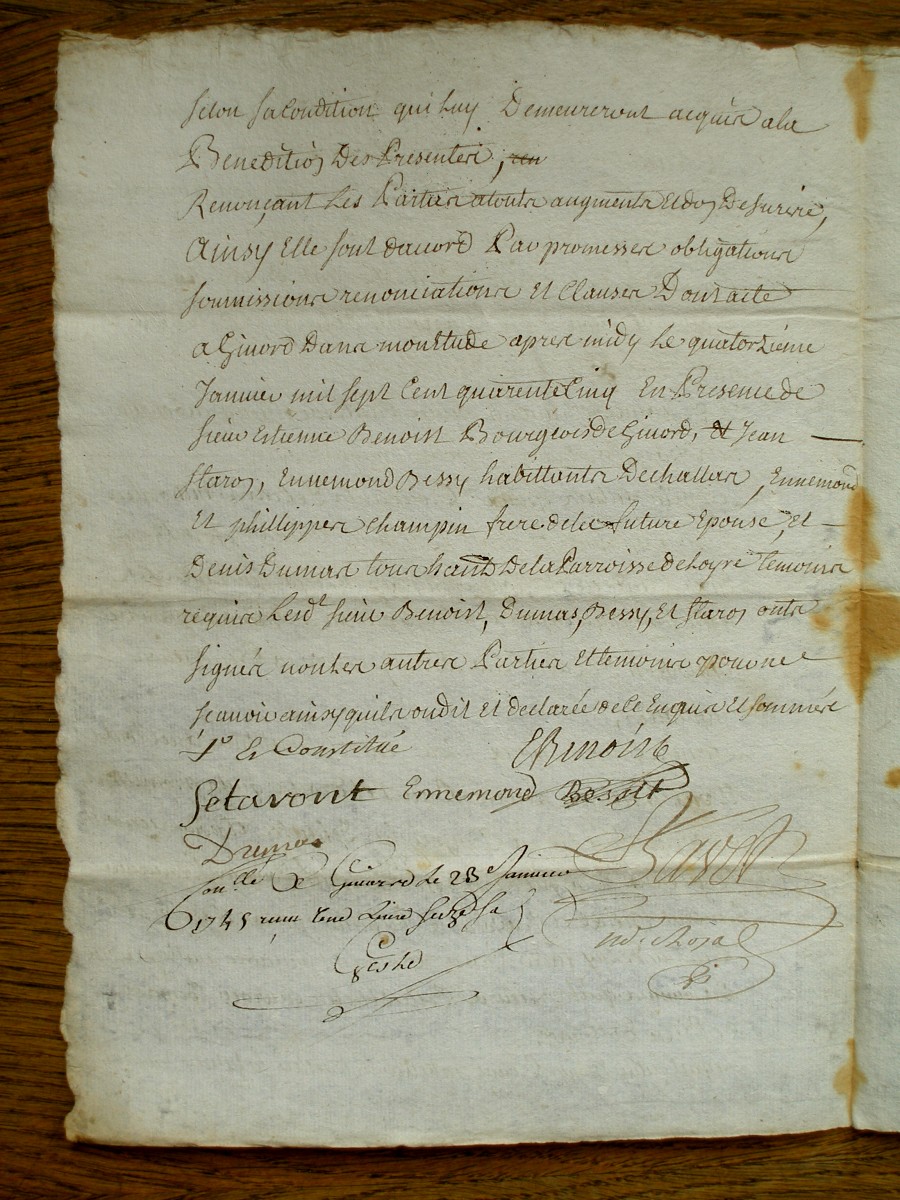 selon sa Condition qui luy Demeureront acquis a la
Benediction Des Presentes, ren
Renonçant les Parties a touts augments Et dos De survie,
Ainsy Elle sont daccord Par promesses obligations
soumissions renonciations Et Clauses Dont acte
a Givord Dans mon Etude apres midy le quatorzième
Janvier mil sept Cent quarente Cinq En Presence de
sieur Estienne Benoist Bourgeois de Givord, Et Jean
staron, Ennemond Bessy habittants De challas, Ennemond
Et phillippes champin frere de la future Epouse, Et
Denis Dumas tous habts De la Parroisse de Loyre temoins
requis Lesdt sieur Benoist, Dumas, Bessy, Et staron onts
signés non les autres Parties Et temoins pour ne
scavoir ainsy quils on dit Et declarée de Ce Enquis Et sommés
Et Constitué
EBenoist
Setaront Ennemond Bessit
Dumas
Con.lle De Givord le 28e Janvier
1745 livre